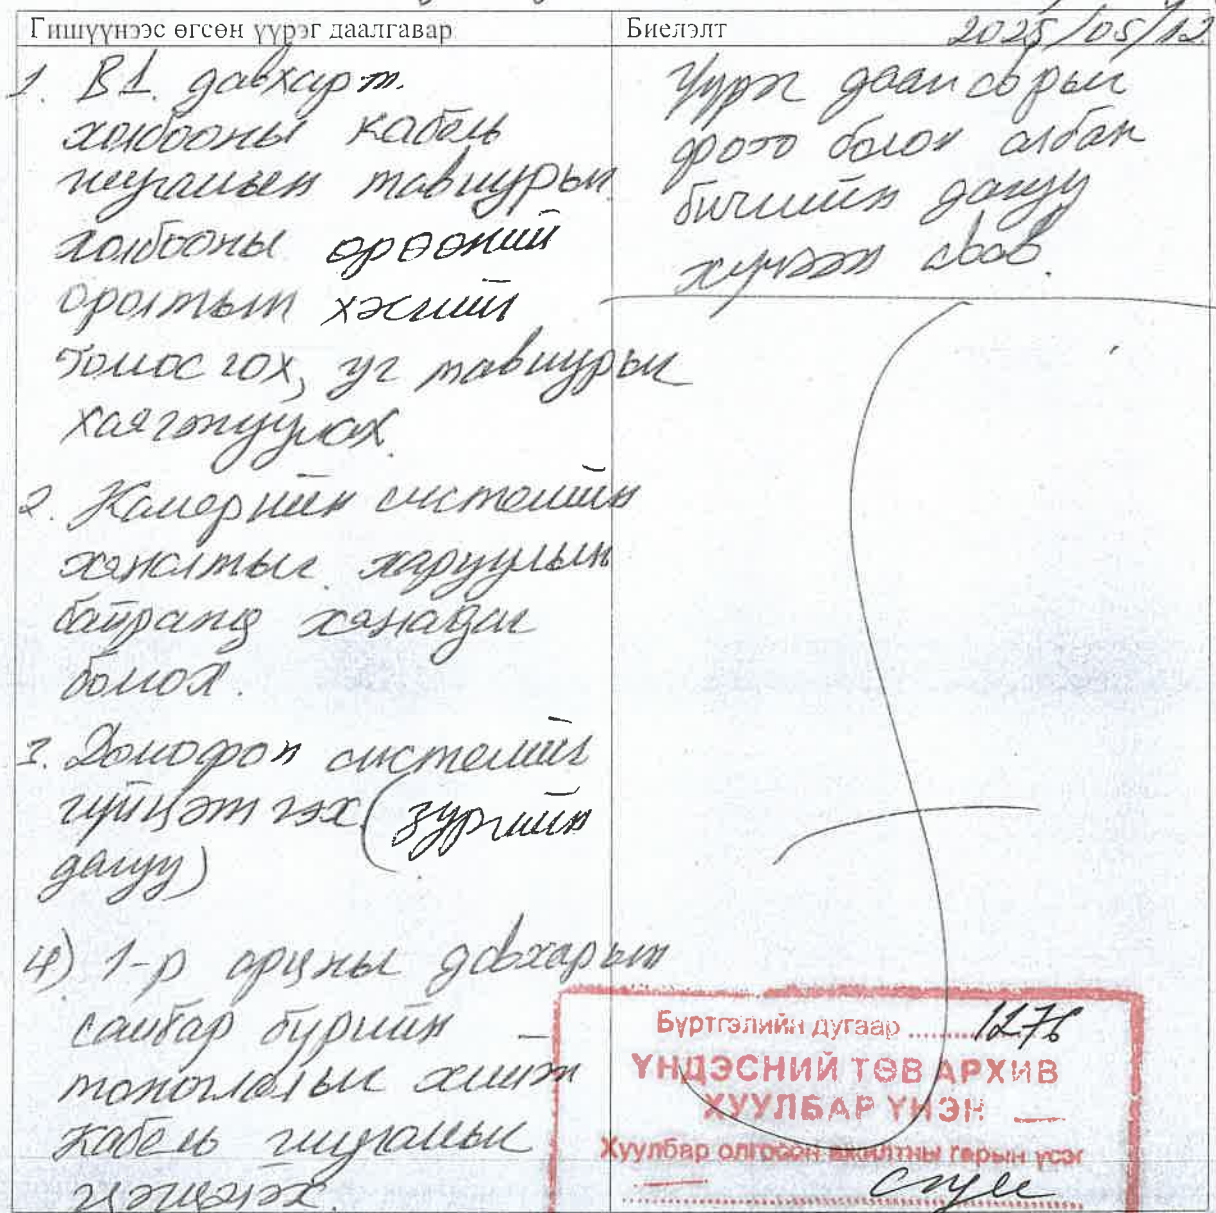 Гишүүнээс өгсөн үүрэг даалгавар
1. B1. давхарт.
холбооны кабель
шугамын тавиурын
холбооны өрөөний
оролтын хэсгийг
томосгох, уг тавиурыг
хаягжуулах.
2. Камерийн системийн
хяналтыг харуулын
байранд хянадаг
болох.
3. Домофон системийг
гүйцэтгэх (зургийн
дагуу)
4) 1-р орцны давхарын
самбар бүрийн
тоноглолыг хийж
кабель шугамыг
цэгцлэх.
Биелэлт 2025/05/12.
Үүрэг даалгаврыг
фото болон албан
бичгийн дагуу
хүлээн авав.
Бүртгэлийн дугаар 1276
ҮНДЭСНИЙ ТӨВ АРХИВ
ХУУЛБАР ҮНЭН
Хуулбар олгосон ажилтны гарын үсэг